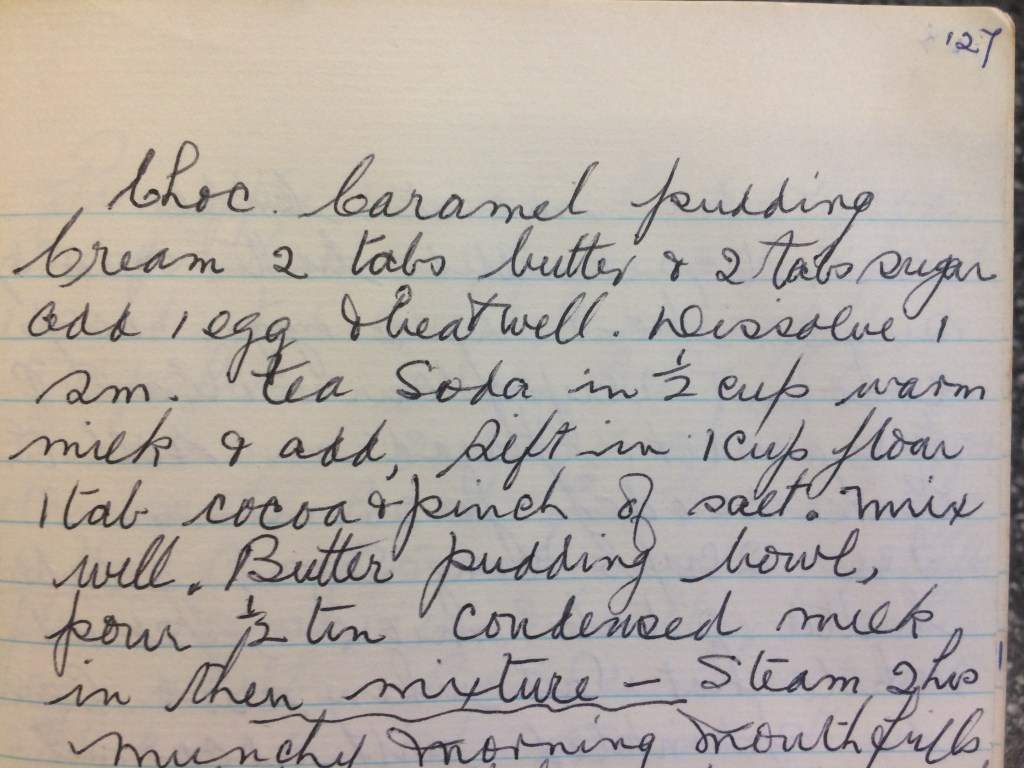 127
Choc. Caramel pudding
Cream 2 tabs butter & 2 tabs sugar
add 1 egg & beat well. Dissolve 1
sm. tea Soda in ½ cup warm
milk & add, Sift in 1 cup flour
1 tab cocoa & pinch of salt. Mix
well. Butter pudding bowl,
pour ½ tin condensed milk
in then mixture – Steam 2 hrs
Munchy Morning Mouthfulls